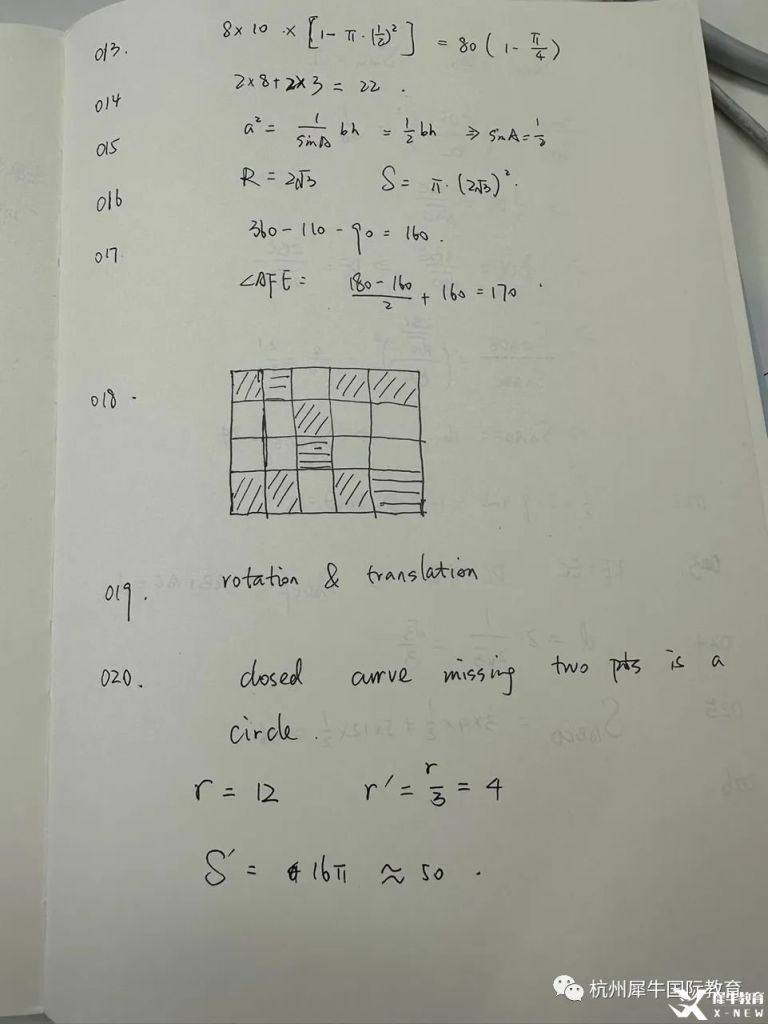 013. 8×10 × [1-π·(1/2)²] = 80(1-π/4)
014 2×8+2×3 = 22 .
015 a² = 1/sinA bh = 1/2 bh ⇒ sinA = 1/2
016 R = 2√3 S = π·(2√3)².
017. 360-110-90 = 160 .
∠AFE = (180-160)/2 + 160 = 170 .
018.
019. rotation & translation
020. closed curve missing two pts is a
circle .
r = 12 r′ = r/3 = 4
S′ = 16π ≈ 50 .
杭州犀牛国际教育
犀牛教育
X-NEW